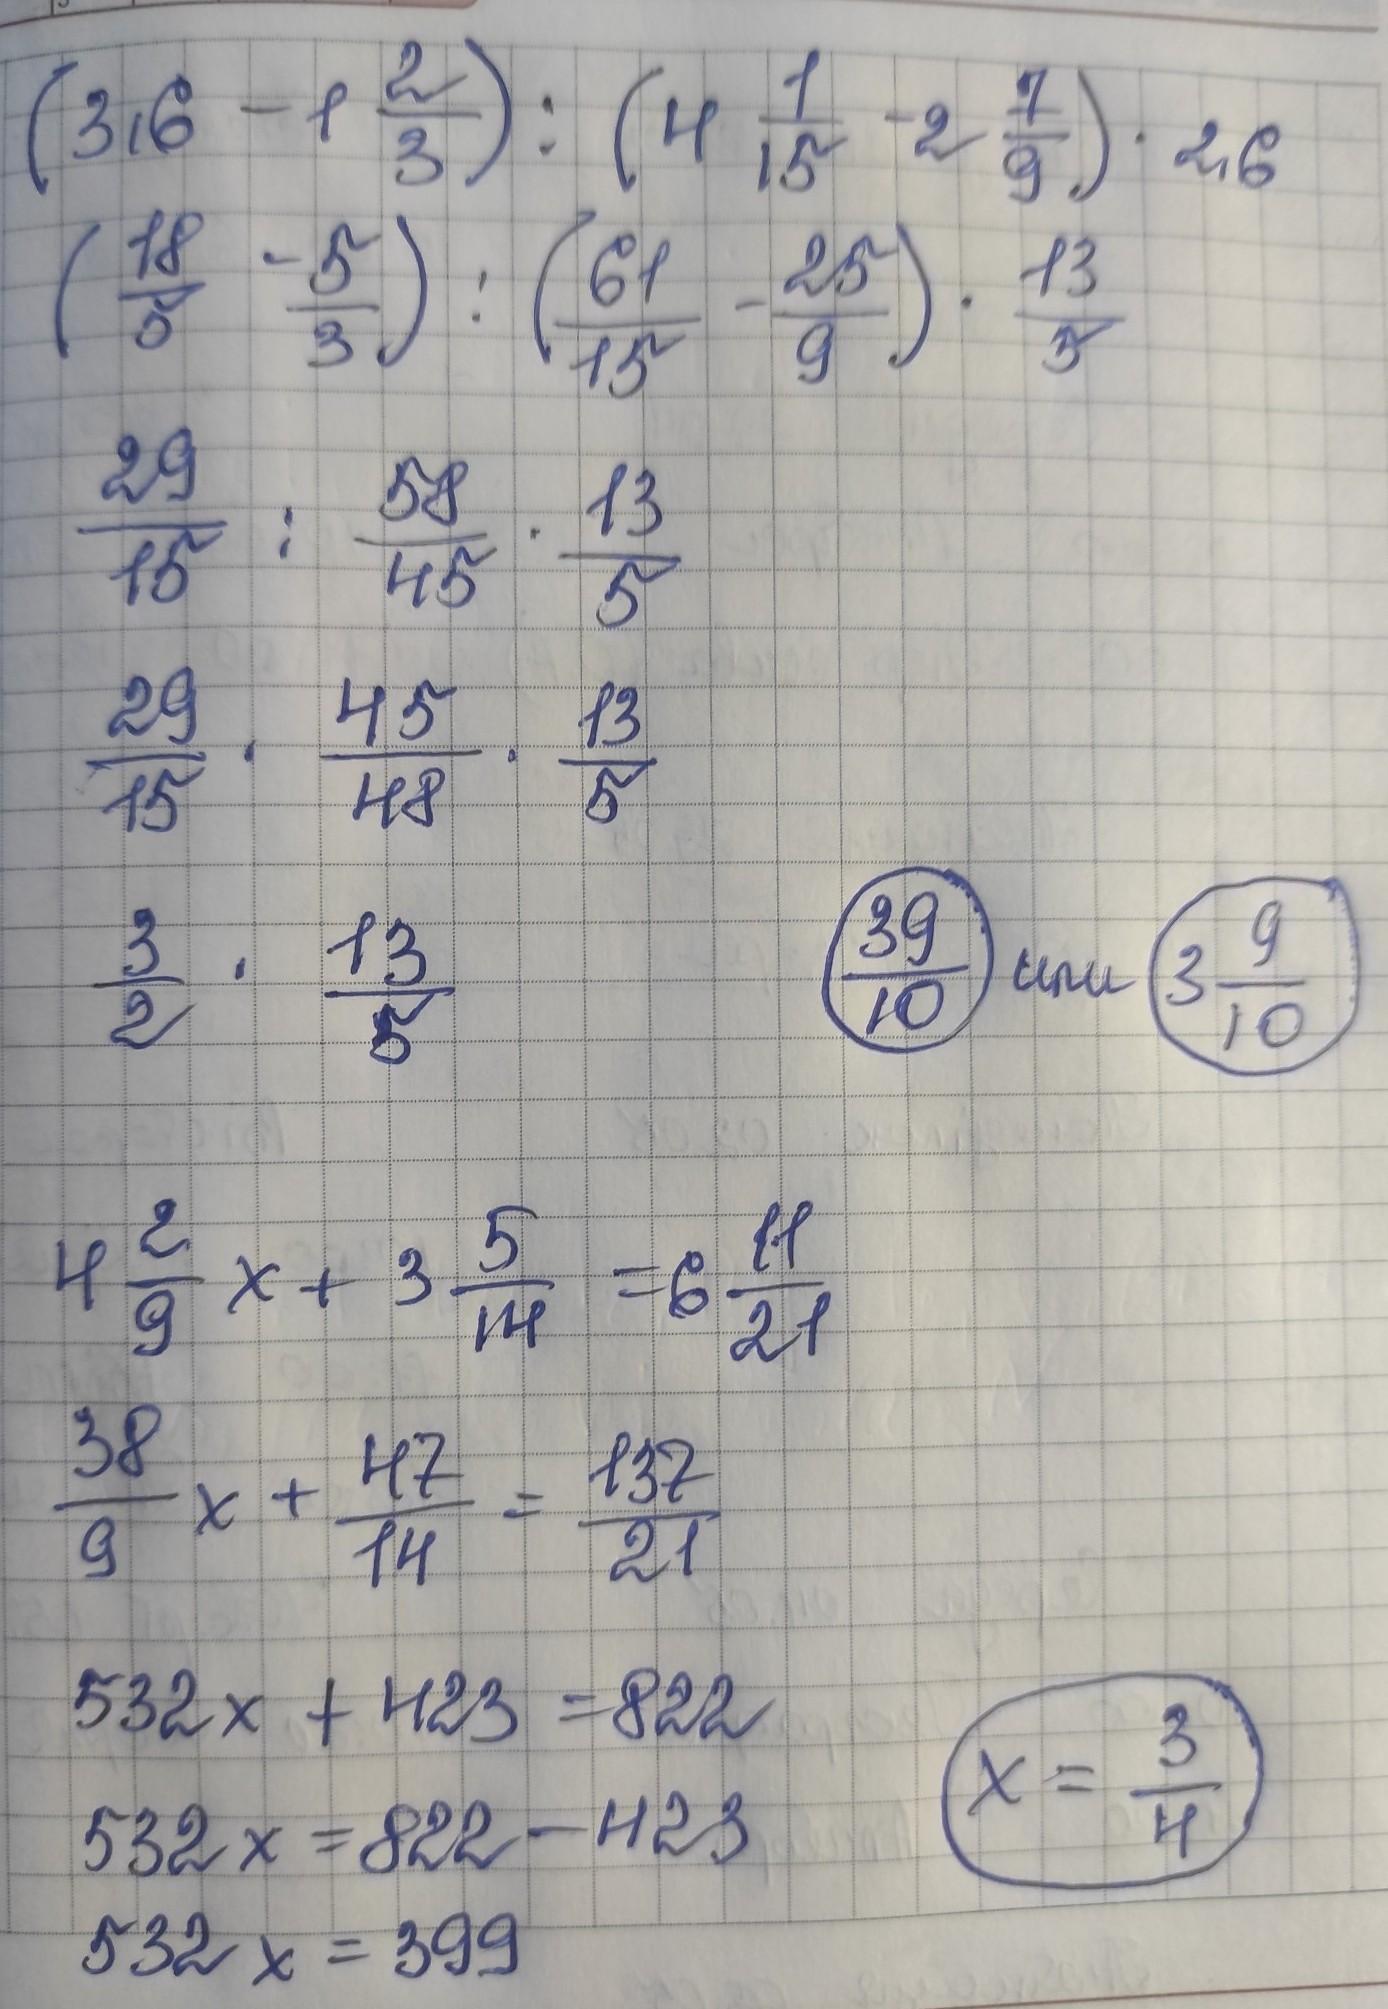 (3,6 - 1 2/3) : (4 1/15 - 2 7/9) · 2,6
(18/5 - 5/3) : (61/15 - 25/9) · 13/5
29/15 : 58/45 · 13/5
29/15 · 45/48 · 13/5
3/2 · 13/5 39/10 или 3 9/10
4 2/9 x + 3 5/14 = 6 11/21
38/9 x + 47/14 = 137/21
532x + 423 = 822
532x = 822 - 423
x = 3/4
532x = 399